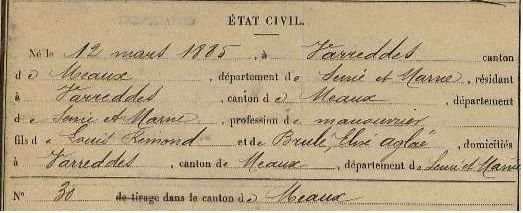 ÉTAT CIVIL.
Né le 12 mars 1885, à Varreddes canton
d e Meaux, département de Seine et Marne, résidant
à Varreddes, canton de Meaux, département
d e Seine et Marne, profession de manouvrier
fils d e Louis Remond et de Brulé, Elise Aglaé, domiciliés
à Varreddes, canton de Meaux, département de Seine et Marne
N° 30 de tirage dans le canton de Meaux